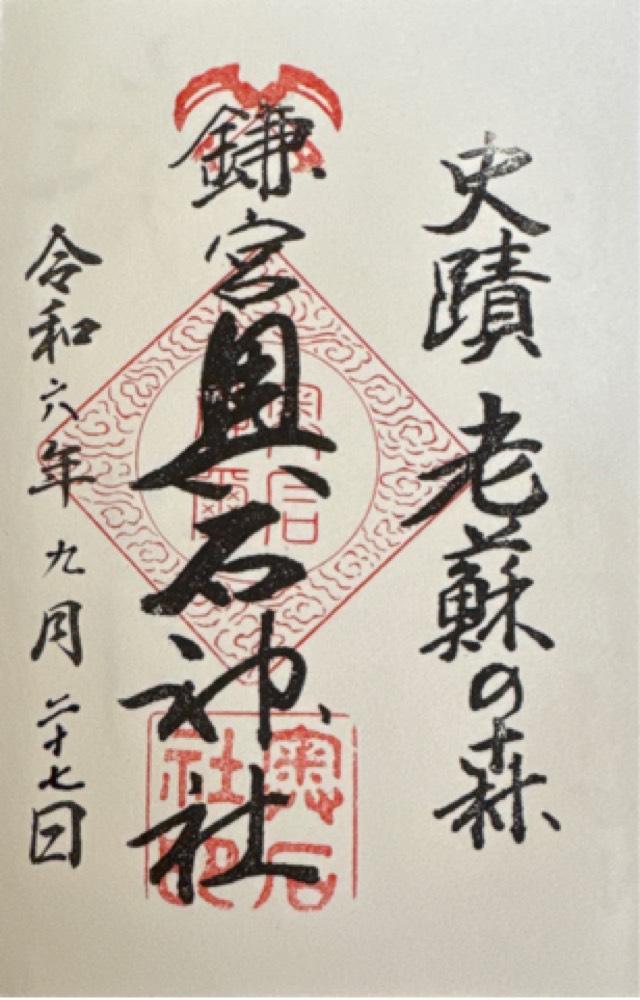 史蹟 老蘇の森
鎌宮 奥石神社
令和六年 九月 二十七日
奥石
社印